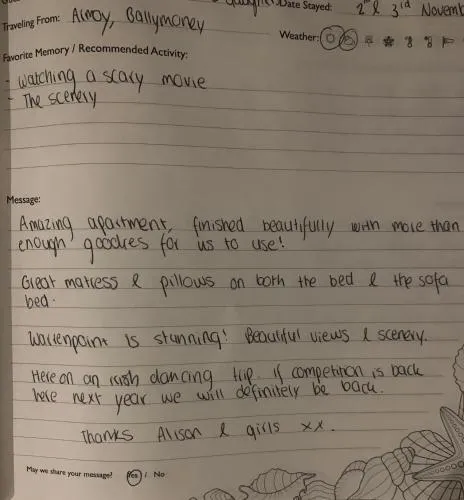 Date Stayed: 2nd & 3rd Novemb
Traveling From: Armoy, Ballymoney
Weather:
Favorite Memory / Recommended Activity:
- Watching a scary movie
- The scenery
Message:
Amazing apartment, finished beautifully with more than
enough goodies for us to use!
Great matress & pillows on both the bed & the sofa
bed.
Warrenpoint is stunning! Beautiful views & scenery.
Here on an irish dancing trip. If competition is back
here next year we will definitely be back.
Thanks Alison & girls xx.
May we share your message? Yes / No